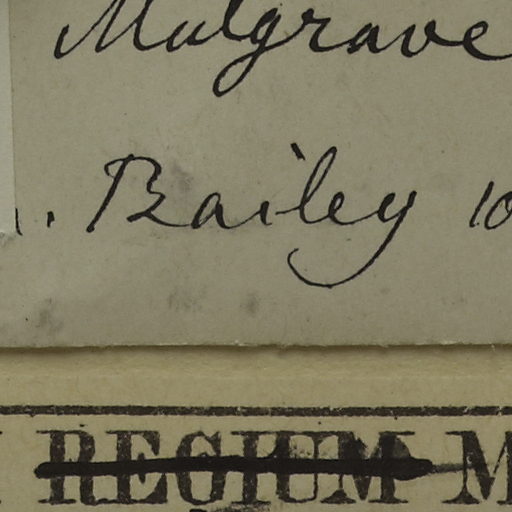 Mulgrave
. Bailey 10
REGIUM M